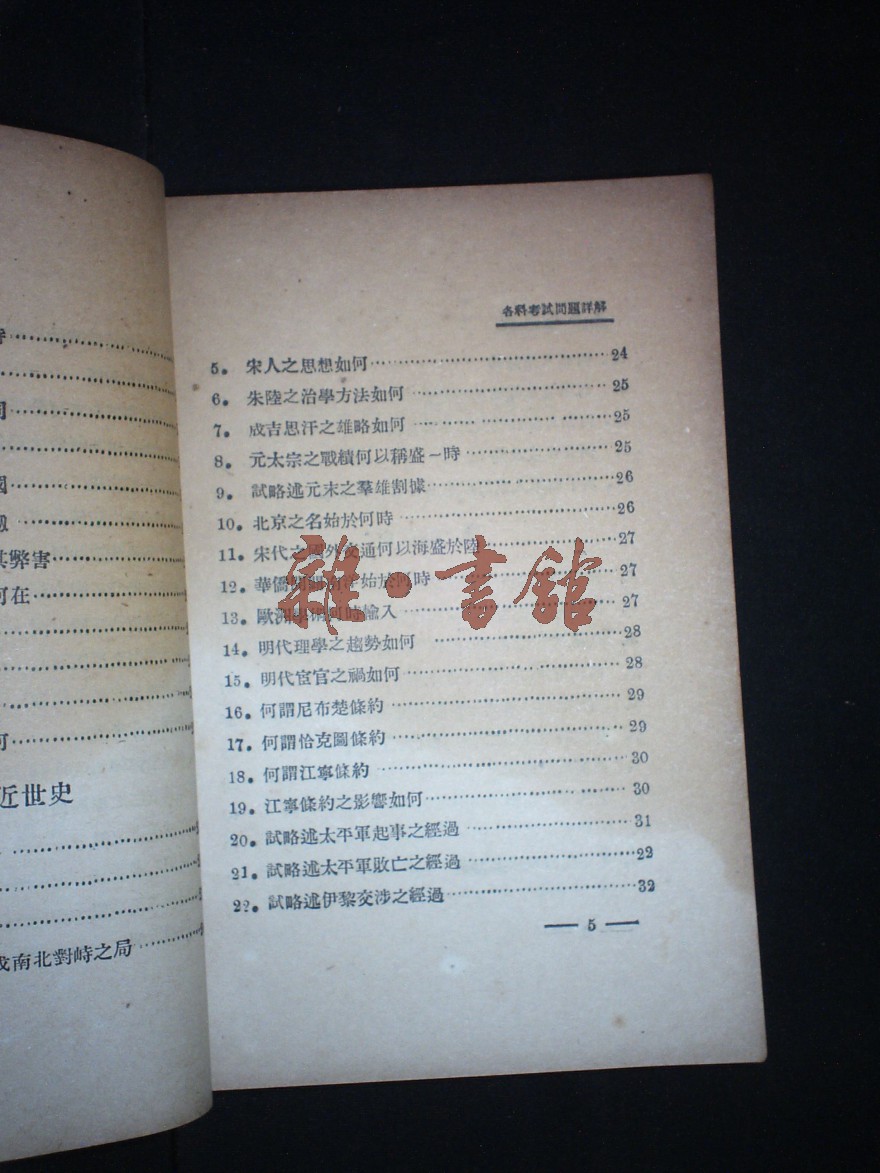 各科考試問題詳解
5. 宋人之思想如何……24
6. 朱陸之治學方法如何……25
7. 成吉思汗之雄略如何……25
8. 元太宗之戰績何以稱盛一時……25
9. 試略述元末之羣雄割據……26
10. 北京之名始於何時……26
11. 宋代之國外交通何以海盛於陸……27
12. 華僑 始於何時……27
13. 歐洲學術何時輸入……27
14. 明代理學之趨勢如何……28
15. 明代宦官之禍如何……28
16. 何謂尼布楚條約……29
17. 何謂恰克圖條約……29
18. 何謂江寧條約……30
19. 江寧條約之影響如何……30
20. 試略述太平軍起事之經過……31
21. 試略述太平軍敗亡之經過……22
22. 試略述伊黎交涉之經過……32
— 5 —
其弊害
可在
近世史
南北對峙之局
雜·書館